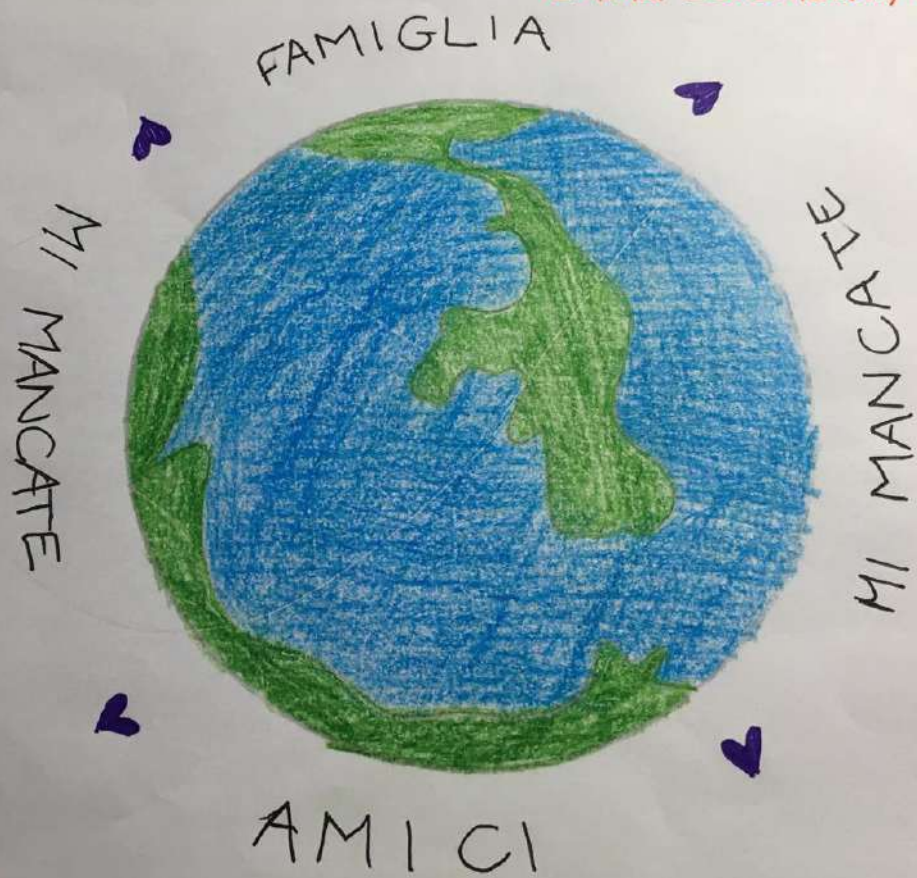 FAMIGLIA
MI MANCATE
MI MANCATE
AMICI